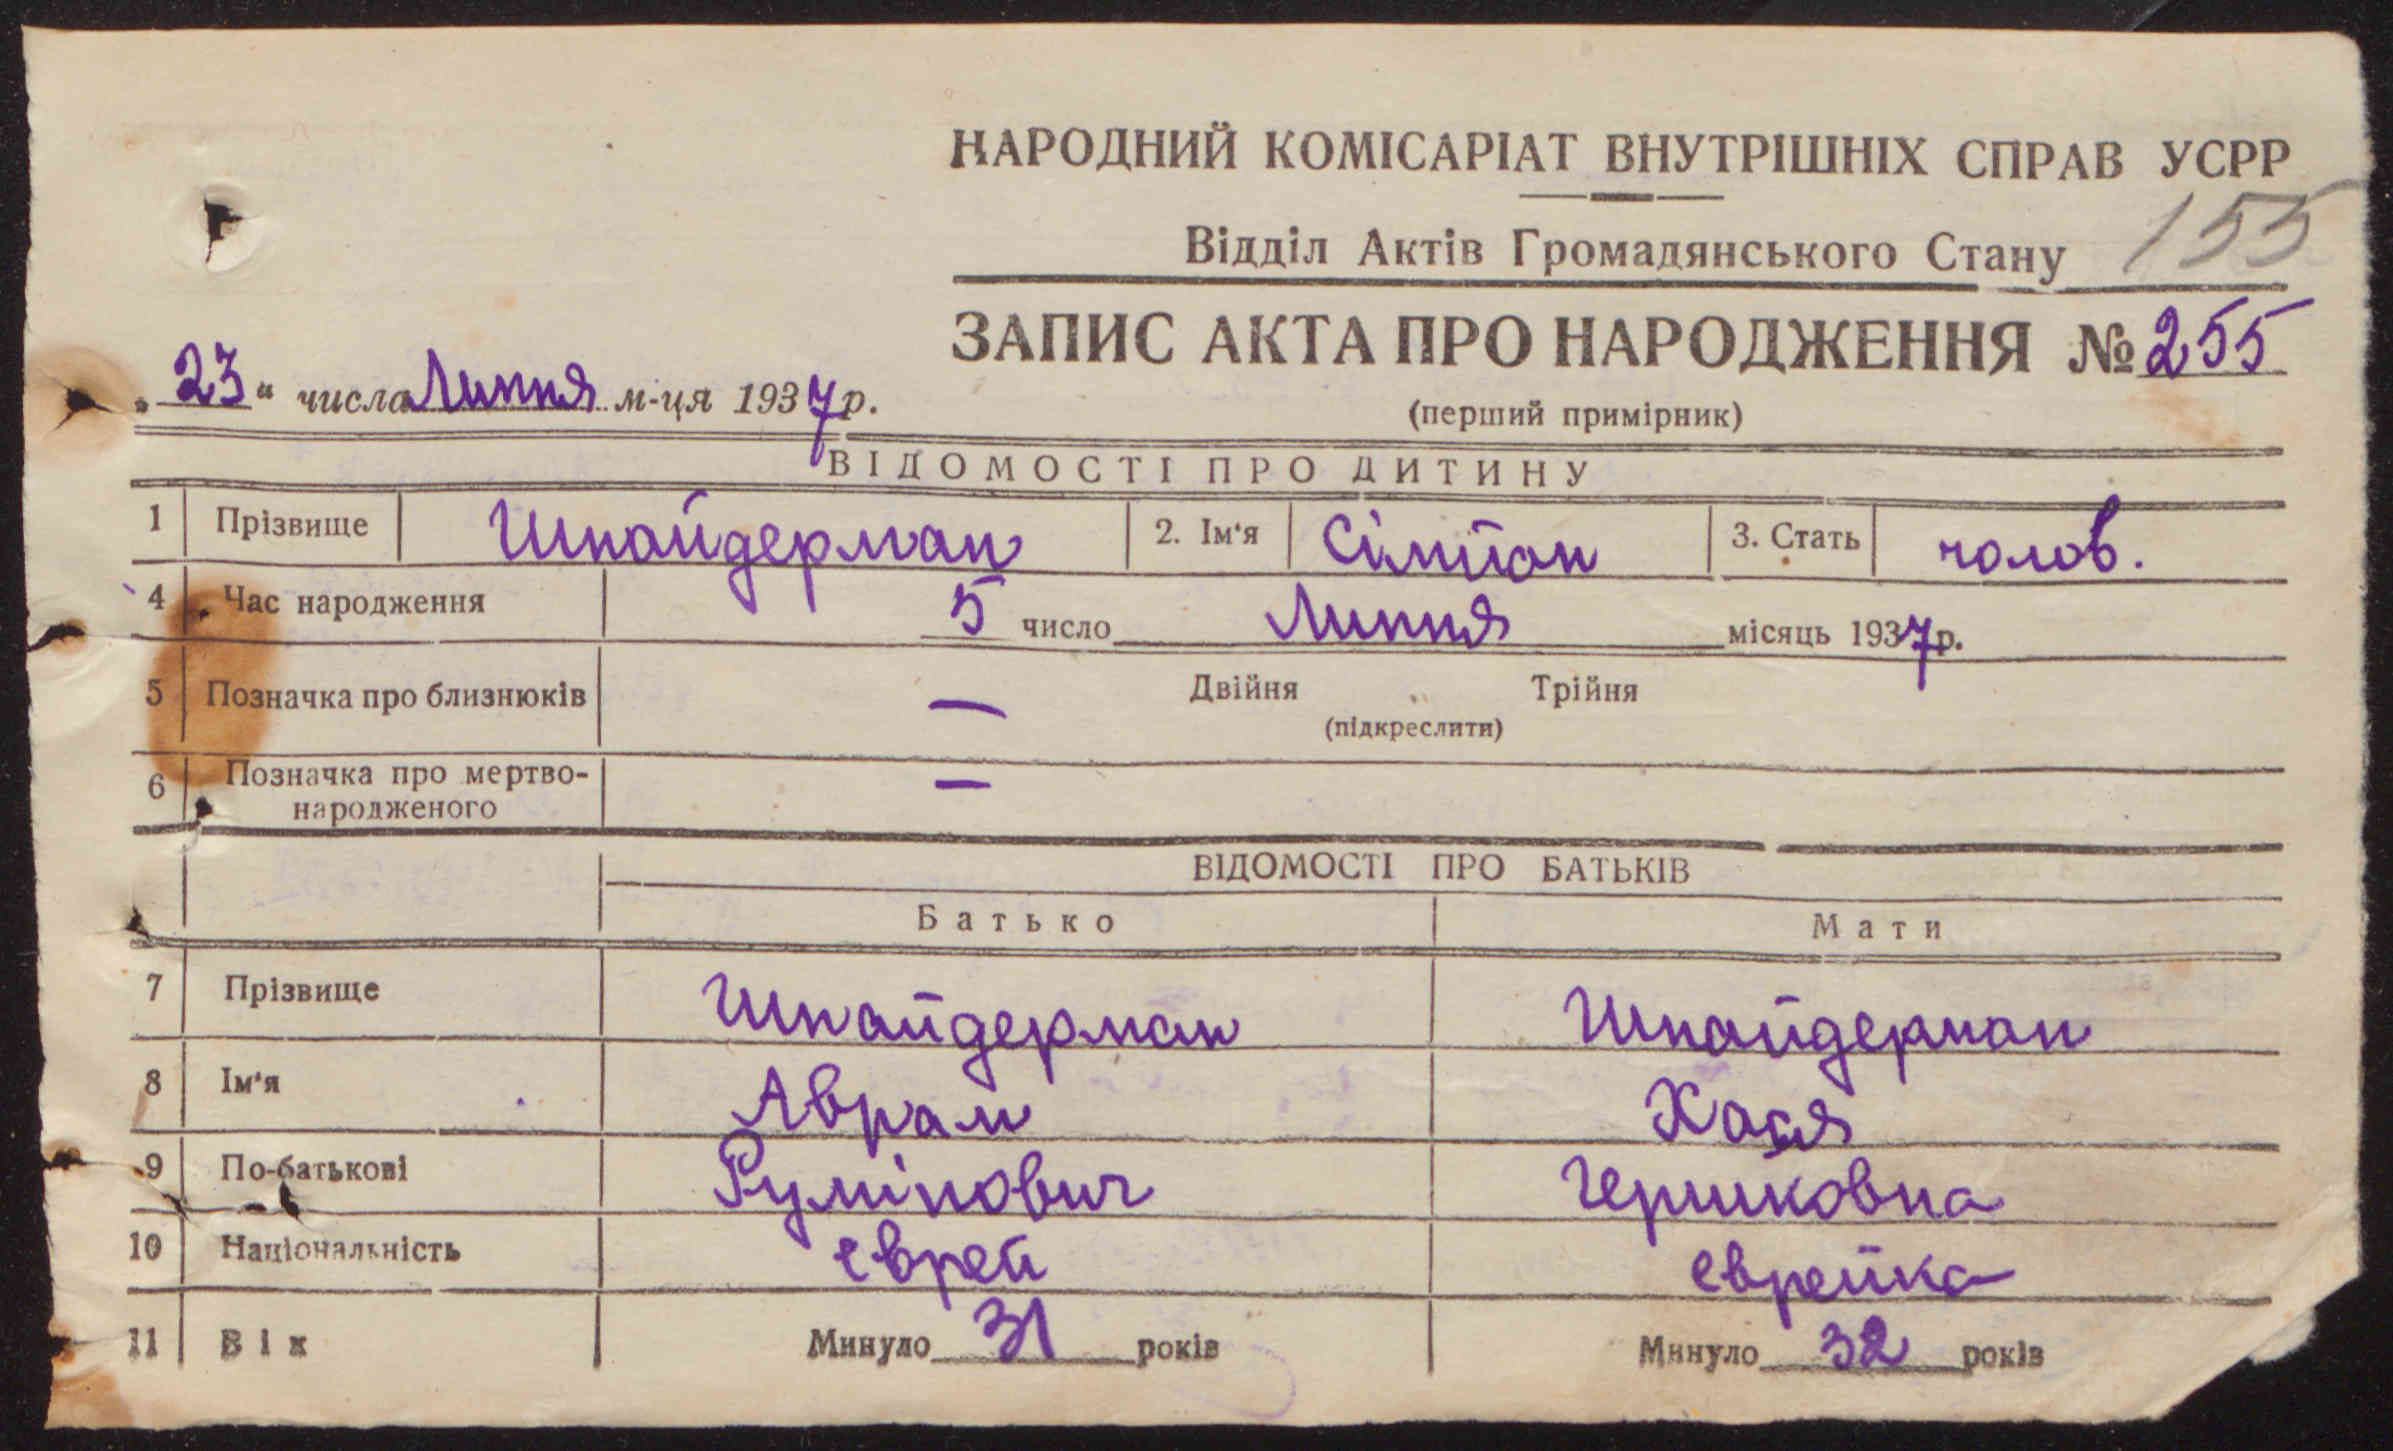 НАРОДНИЙ КОМІСАРІАТ ВНУТРІШНІХ СПРАВ УСРР
Відділ Актів Громадянського Стану 155
ЗАПИС АКТА ПРО НАРОДЖЕННЯ № 255
„23“ числа Липня м-ця 1937 р.
(перший примірник)
ВІДОМОСТІ ПРО ДИТИНУ
1 Прізвище Шпайдерман 2. Ім'я Сімйон 3. Стать чолов.
4 Час народження 5 число Липня місяць 1937 р.
5 Позначка про близнюків — Двійня Трійня
(підкреслити)
6 Позначка про мертво-
народженого —
ВІДОМОСТІ ПРО БАТЬКІВ
Батько Мати
7 Прізвище Шпайдерман Шпайдерман
8 Ім'я Аврам Хася
9 По-батькові Румінович Гершковна
10 Національність єврей єврейка
11 Вік Минуло 31 років Минуло 32 років